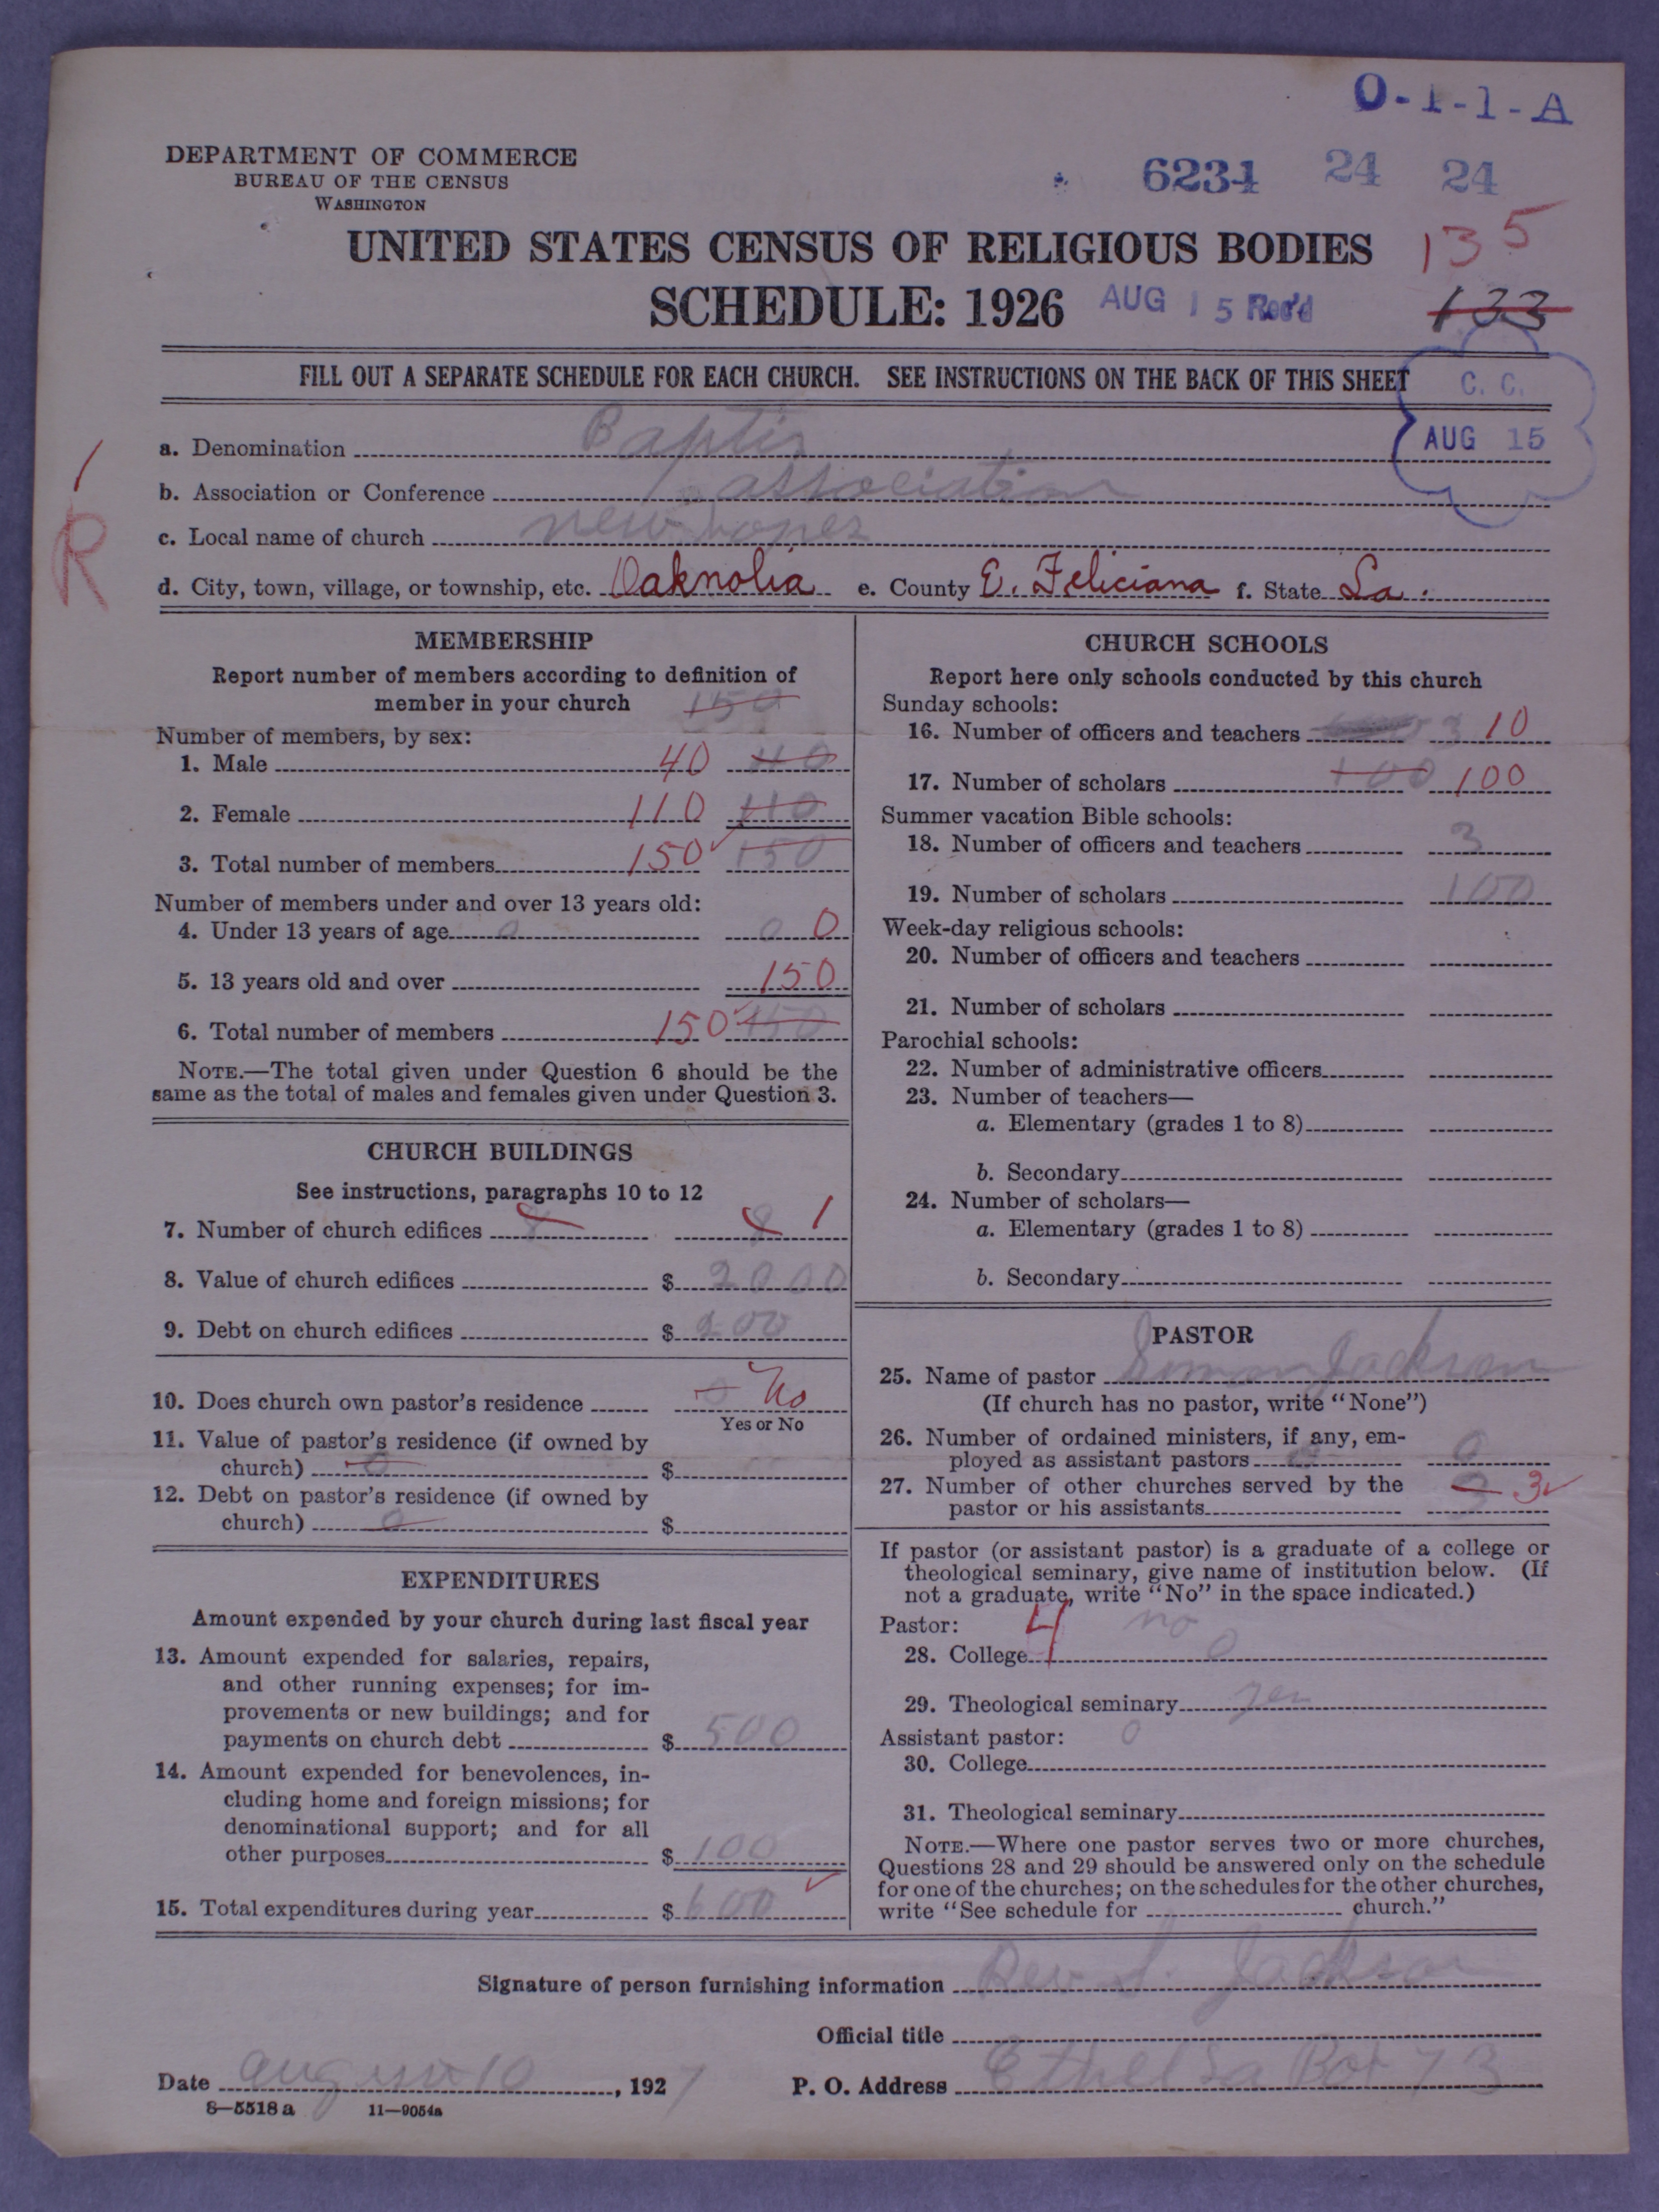 O-1-1-A
DEPARTMENT OF COMMERCE
BUREAU OF THE CENSUS
WASHINGTON
6231 24 24
UNITED STATES CENSUS OF RELIGIOUS BODIES
135
SCHEDULE: 1926
AUG 15 Rec'd
133
FILL OUT A SEPARATE SCHEDULE FOR EACH CHURCH. SEE INSTRUCTIONS ON THE BACK OF THIS SHEET
C. C.
AUG 15
R
a. Denomination Baptis
b. Association or Conference association
c. Local name of church new hopes
d. City, town, village, or township, etc. Oaknolia e. County E. Feliciana f. State La.
MEMBERSHIP
Report number of members according to definition of
member in your church 150
Number of members, by sex:
1. Male 40 40
2. Female 110 110
3. Total number of members 150 150
Number of members under and over 13 years old:
4. Under 13 years of age 0 0 0
5. 13 years old and over 150
6. Total number of members 150 150
NOTE.—The total given under Question 6 should be the
same as the total of males and females given under Question 3.
CHURCH BUILDINGS
See instructions, paragraphs 10 to 12
7. Number of church edifices 8 8 1
8. Value of church edifices $ 2000
9. Debt on church edifices $ 200
10. Does church own pastor's residence 0 No
Yes or No
11. Value of pastor's residence (if owned by
church) 0 $
12. Debt on pastor's residence (if owned by
church) 0 $
EXPENDITURES
Amount expended by your church during last fiscal year
13. Amount expended for salaries, repairs,
and other running expenses; for im-
provements or new buildings; and for
payments on church debt $ 500
14. Amount expended for benevolences, in-
cluding home and foreign missions; for
denominational support; and for all
other purposes $ 100
15. Total expenditures during year $ 600
CHURCH SCHOOLS
Report here only schools conducted by this church
Sunday schools:
16. Number of officers and teachers 3 10
17. Number of scholars 100 100
Summer vacation Bible schools:
18. Number of officers and teachers 3
19. Number of scholars 100
Week-day religious schools:
20. Number of officers and teachers
21. Number of scholars
Parochial schools:
22. Number of administrative officers
23. Number of teachers—
a. Elementary (grades 1 to 8)
b. Secondary
24. Number of scholars—
a. Elementary (grades 1 to 8)
b. Secondary
PASTOR
25. Name of pastor Simon Jackson
(If church has no pastor, write "None")
26. Number of ordained ministers, if any, em-
ployed as assistant pastors 0 0
27. Number of other churches served by the
pastor or his assistants 3 3
If pastor (or assistant pastor) is a graduate of a college or
theological seminary, give name of institution below. (If
not a graduate, write "No" in the space indicated.)
Pastor: 4 no
28. College 0
29. Theological seminary yes
Assistant pastor: 0
30. College
31. Theological seminary
NOTE.—Where one pastor serves two or more churches,
Questions 28 and 29 should be answered only on the schedule
for one of the churches; on the schedules for the other churches,
write "See schedule for church."
Signature of person furnishing information Rev. S. Jackson
Official title
Date august 10, 1927 P. O. Address Ethel La Box 73
8—5518 a 11—9054a